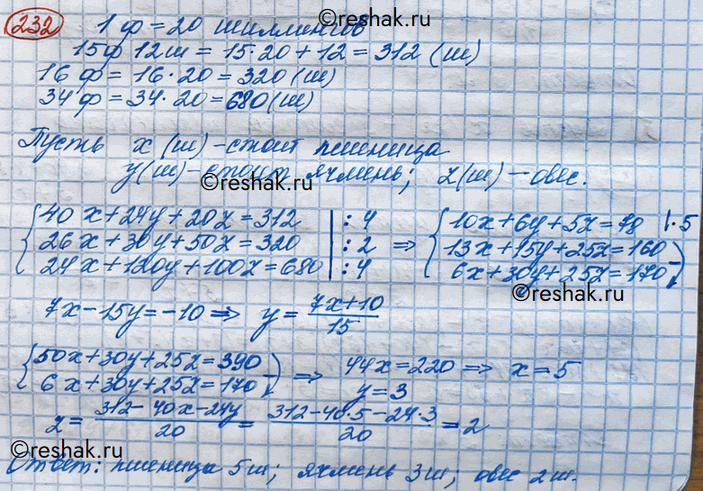 ©reshak.ru
232
1 ф = 20 шиллингов
15ф 12ш = 15·20+12 = 312 (ш)
16 ф = 16·20 = 320 (ш)
34 ф = 34·20 = 680 (ш)
Пусть x (ш) - стоит пшеница
y (ш) - стоит ячмень; z (ш) - овес.
©reshak.ru
{ 40x+24y+20z=312 | :4
26x+30y+50z=320 | :2
24x+120y+100z=680 | :4
⇒ { 10x+6y+5z=78 |·5
13x+15y+25z=160
6x+30y+25z=170
7x-15y=-10 ⇒ y = 7x+10 / 15
©reshak.ru
{ 50x+30y+25z=390
6x+30y+25z=170
⇒ 44x=220 ⇒ x=5
y=3
z = 312-40x-24y / 20 = 312-40·5-24·3 / 20 = 2
©reshak.ru
Ответ: пшеница 5ш; яхмень 3ш; овес 2ш.